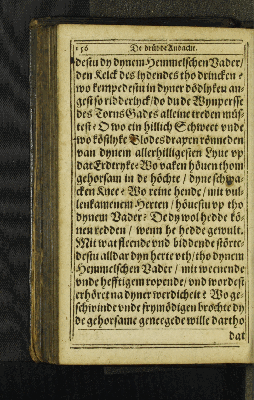 156 De drüdde Andacht.
destu dy dynem Hemmelschen Vader/
den Kelck des lydendes tho drincken?
wo kempedestu in dyner dödlyken an-
gest so ridderlyck/do du de Wynpersse
des Torns Gades alleine treden müs-
test? O wo ein hillich Schweet vnde
wo köstlyke Blodesdrapen rönneden
van dynem allerhilligesten Lyue vp
dat Erdtryke? Wo vaken höuen thom
gehorsam in de höchte / dyne schwa-
cken Knee? Wo reine hende/mit vul-
lenkamenem Herten / höuestu vp tho
dynem Vader? De dy wol hedde kö-
nen redden / wenn he hedde gewult.
Mit wat fleende vnd biddende störte-
destu alldar dyn herte vth/tho dynem
Hemmelschen Vader / mit weenende
vnde hefftigem ropende/ vnd wordest
erhöret na dyner werdicheit? Wo ge-
schwinde vnde frymödigen bröchte dy
de gehorsame geneegede wille dartho
dat